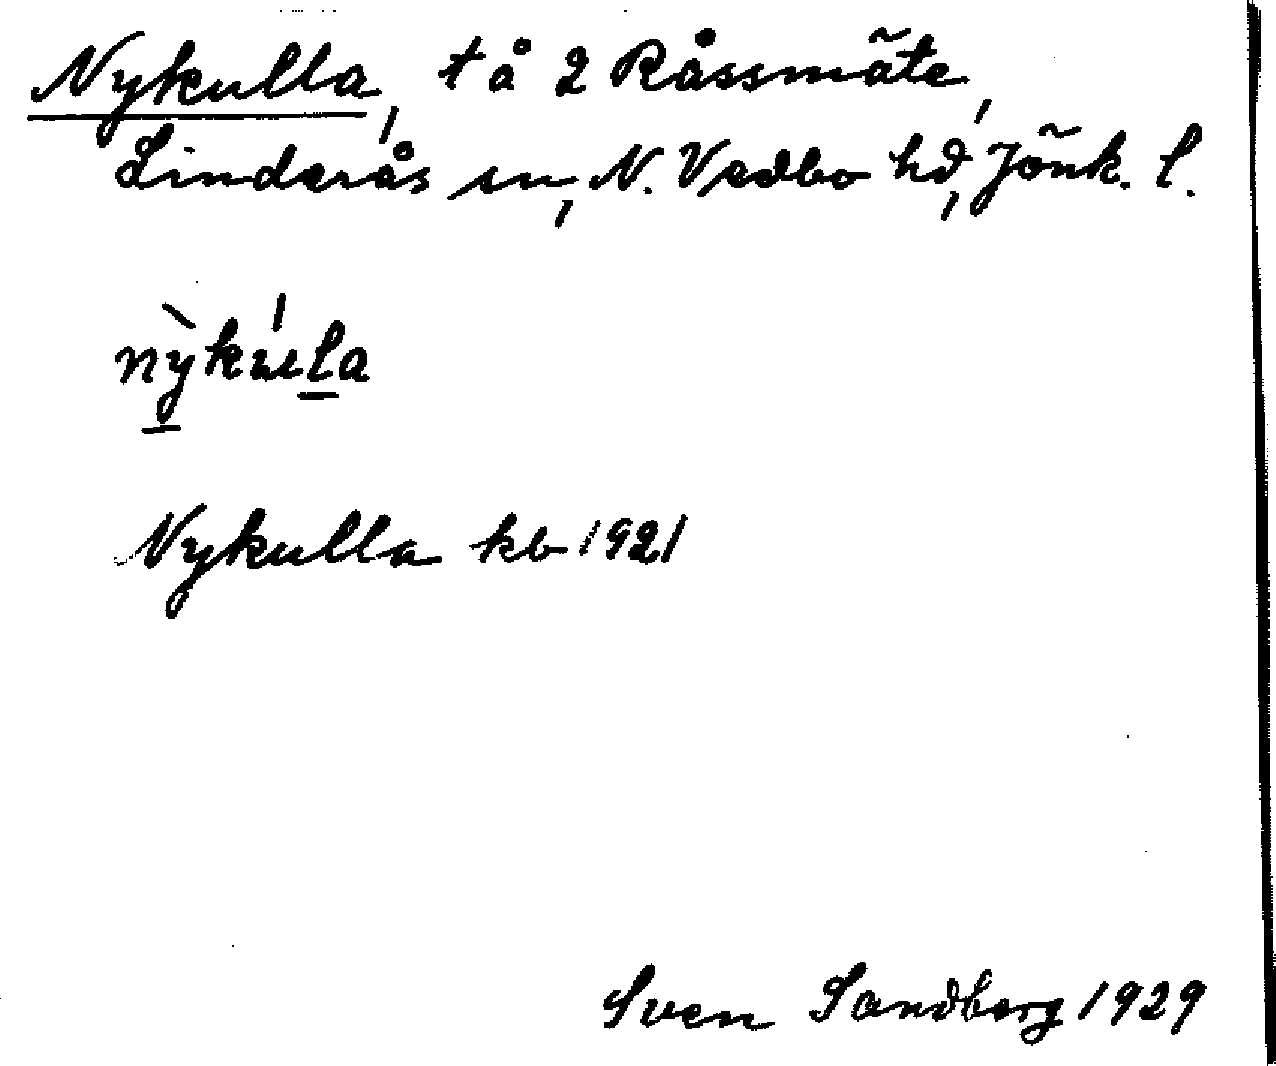 Nykulla, t å 2 Råssmäte,
Linderås sn, N. Vedbo hd, Jönk. l.
nỳkúla
Nykulla kb 1921
Sven Sandberg 1929